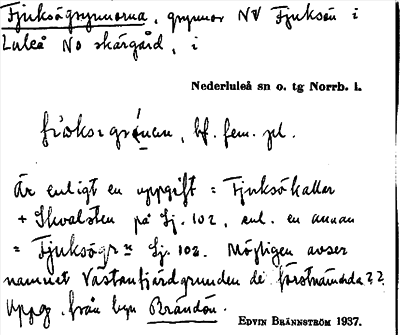 Fjuksögrynnorna, grynnor NV Fjuksön i
Luleå No skärgård, i
Nederluleå sn o. tg Norrb. l.
bf. fem. pl.
Är enligt en uppgift = Fjuksökallar
+ Skvalsten på Sj. 102, enl. en annan
= Fjuksögr Sj. 102. Möjligen avser
namnet Västanfjärdgrunden de förstnämnda??
Uppg. från byn Brändön.
EDVIN BRÄNNSTRÖM 1937.